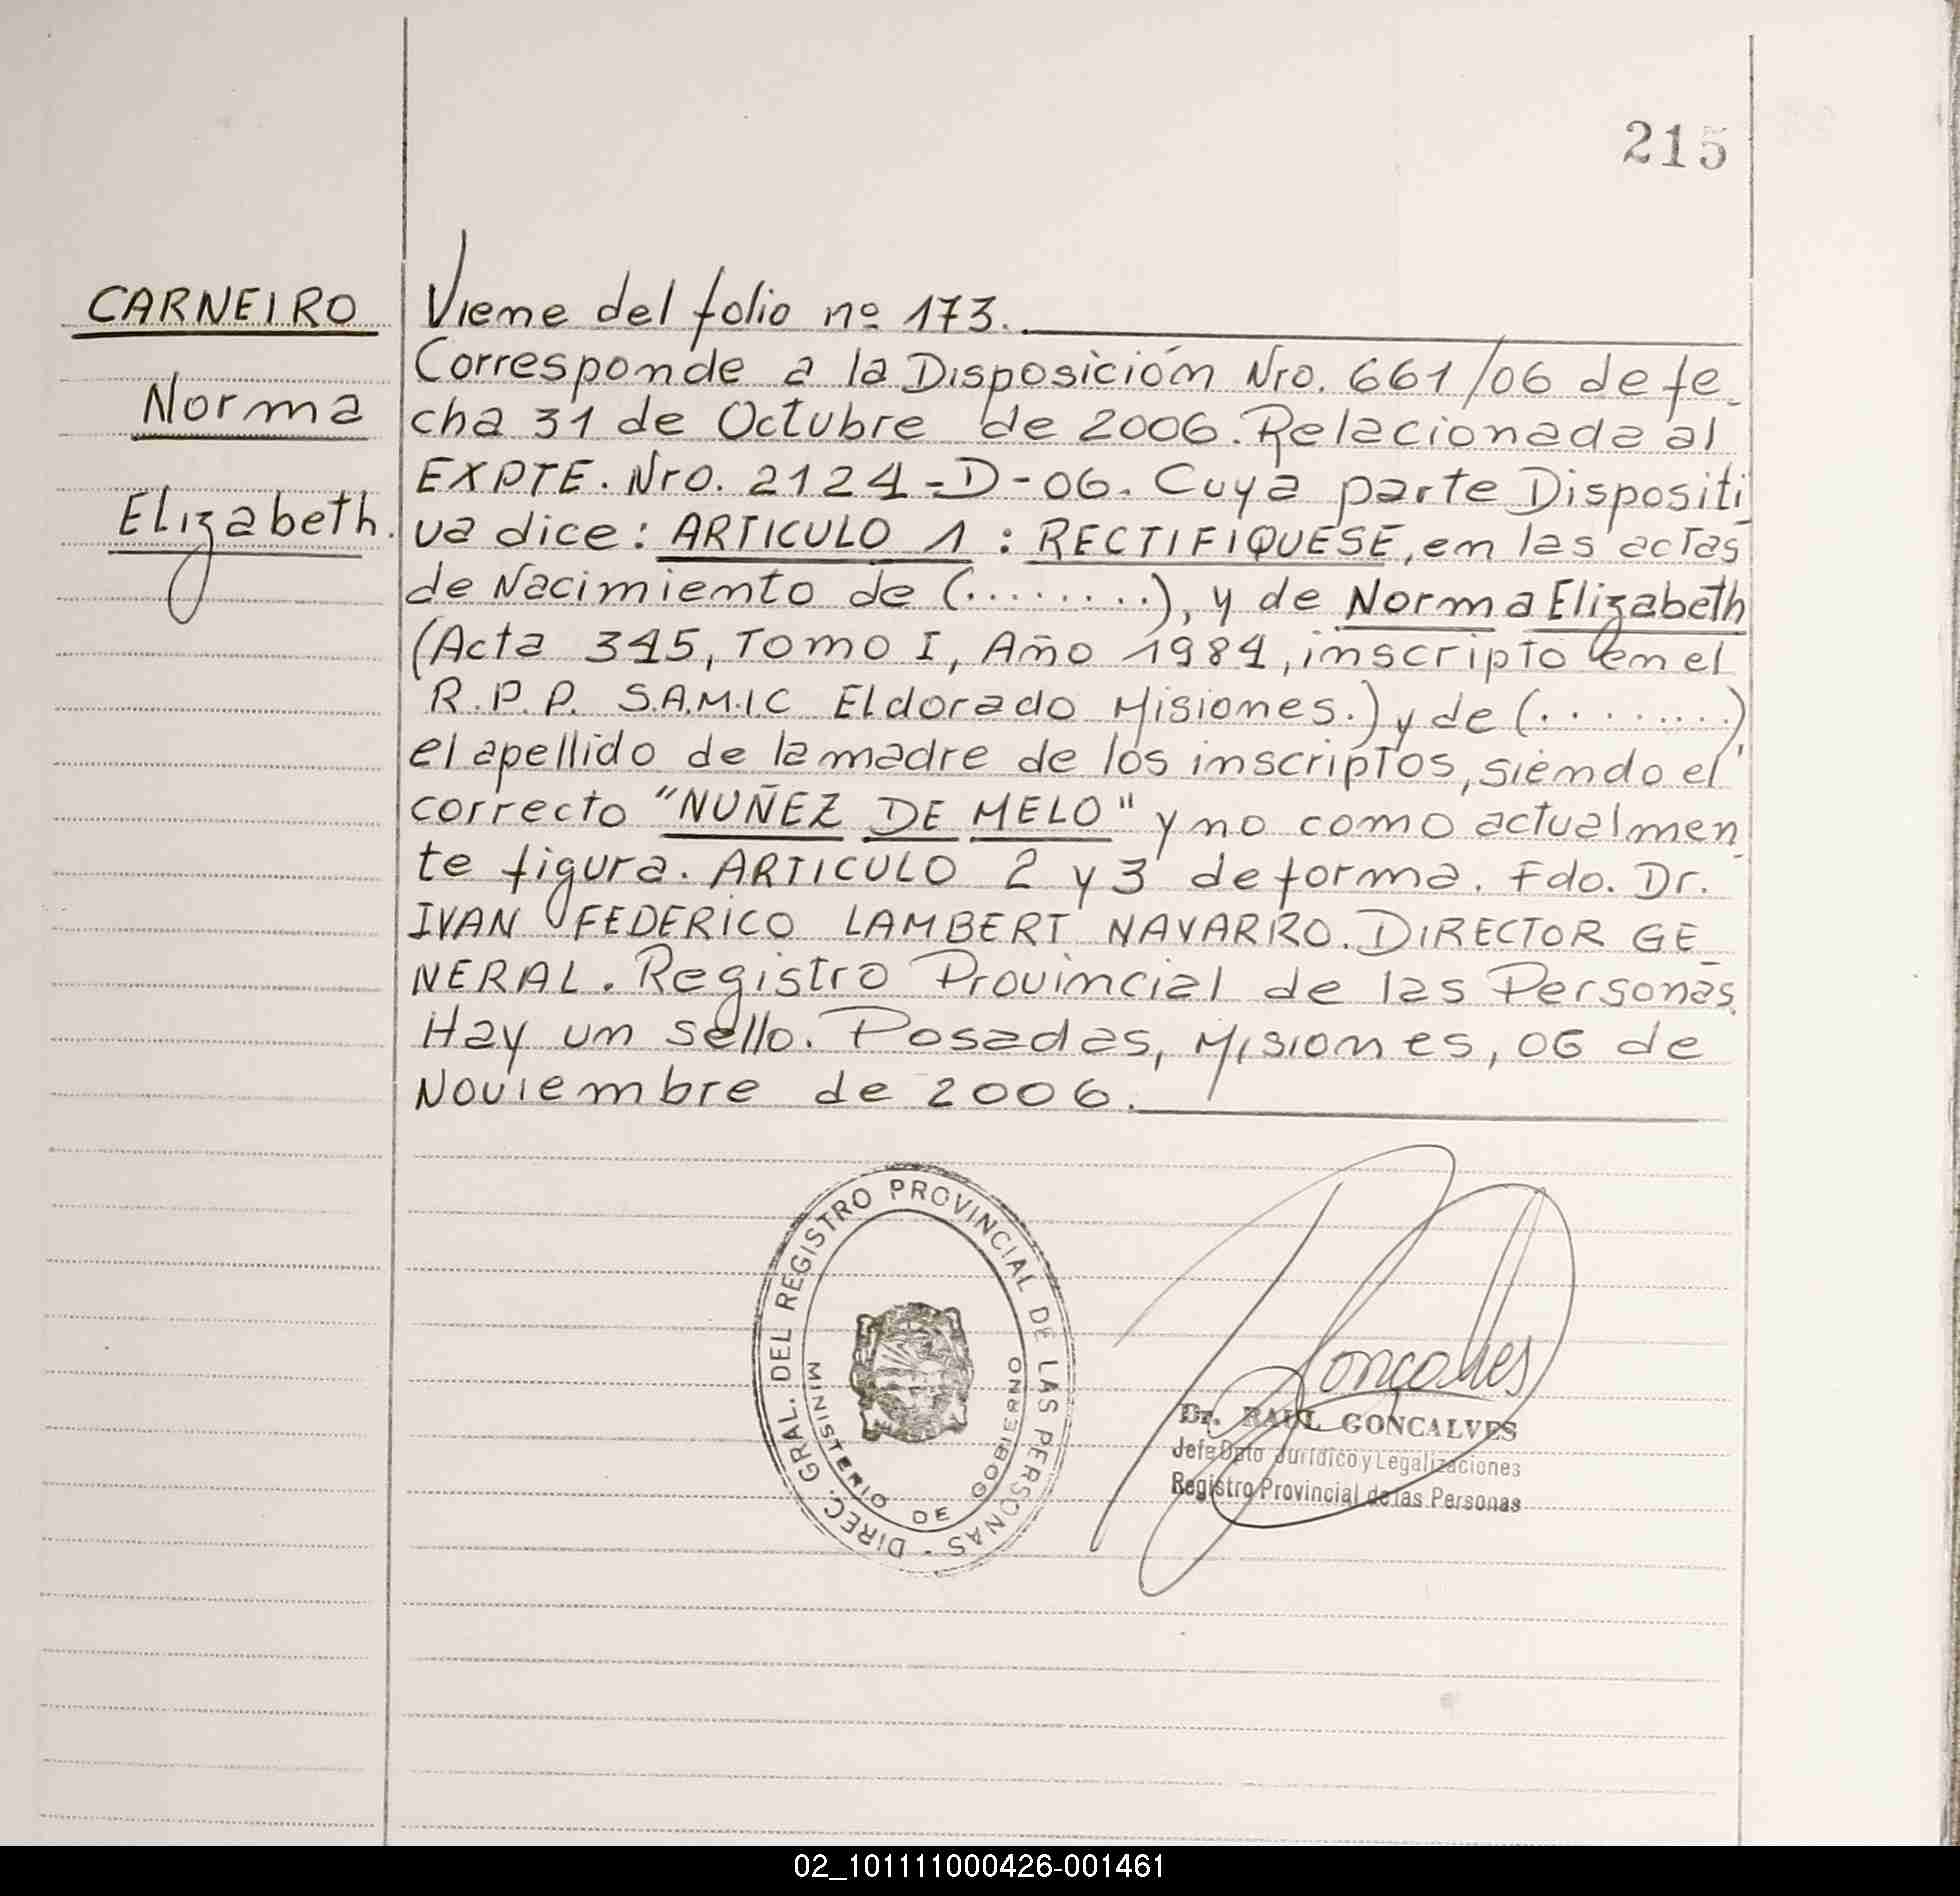 215
CARNEIRO
Norma
Elizabeth.
Viene del folio nº 173.
Corresponde a la Disposición Nro. 661/06 de fe-
cha 31 de Octubre de 2006. Relacionada al
EXPTE. Nro. 2124-D-06. Cuya parte Dispositi-
va dice: ARTICULO 1 : RECTIFIQUESE, en las actas
de Nacimiento de (........), y de Norma Elizabeth
(Acta 345, Tomo I, Año 1984, inscripto en el
R.P.P. S.A.M.I.C Eldorado Misiones.) y de (........)
el apellido de la madre de los inscriptos, siendo el
correcto "NUÑEZ DE MELO" y no como actualmen-
te figura. ARTICULO 2 y 3 de forma. Fdo. Dr.
IVAN FEDERICO LAMBERT NAVARRO. DIRECTOR GE-
NERAL. Registro Provincial de las Personas.
Hay un sello. Posadas, Misiones, 06 de
Noviembre de 2006.
DIREC. GRAL. DEL REGISTRO PROVINCIAL DE LAS PERSONAS -
MINISTERIO DE GOBIERNO
Goncalves
Dr. RAUL GONCALVES
Jefe Dpto Jurídico y Legalizaciones
Registro Provincial de las Personas
02_101111000426-001461